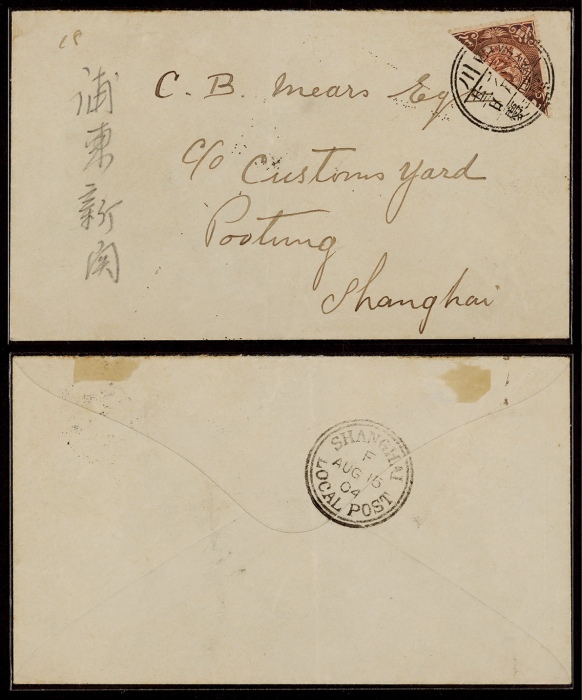 C. B. Mears Esq
c/o Customs Yard
Pootung
Shanghai
浦東新関
SHANGHAI
F
AUG 15
04
LOCAL POST